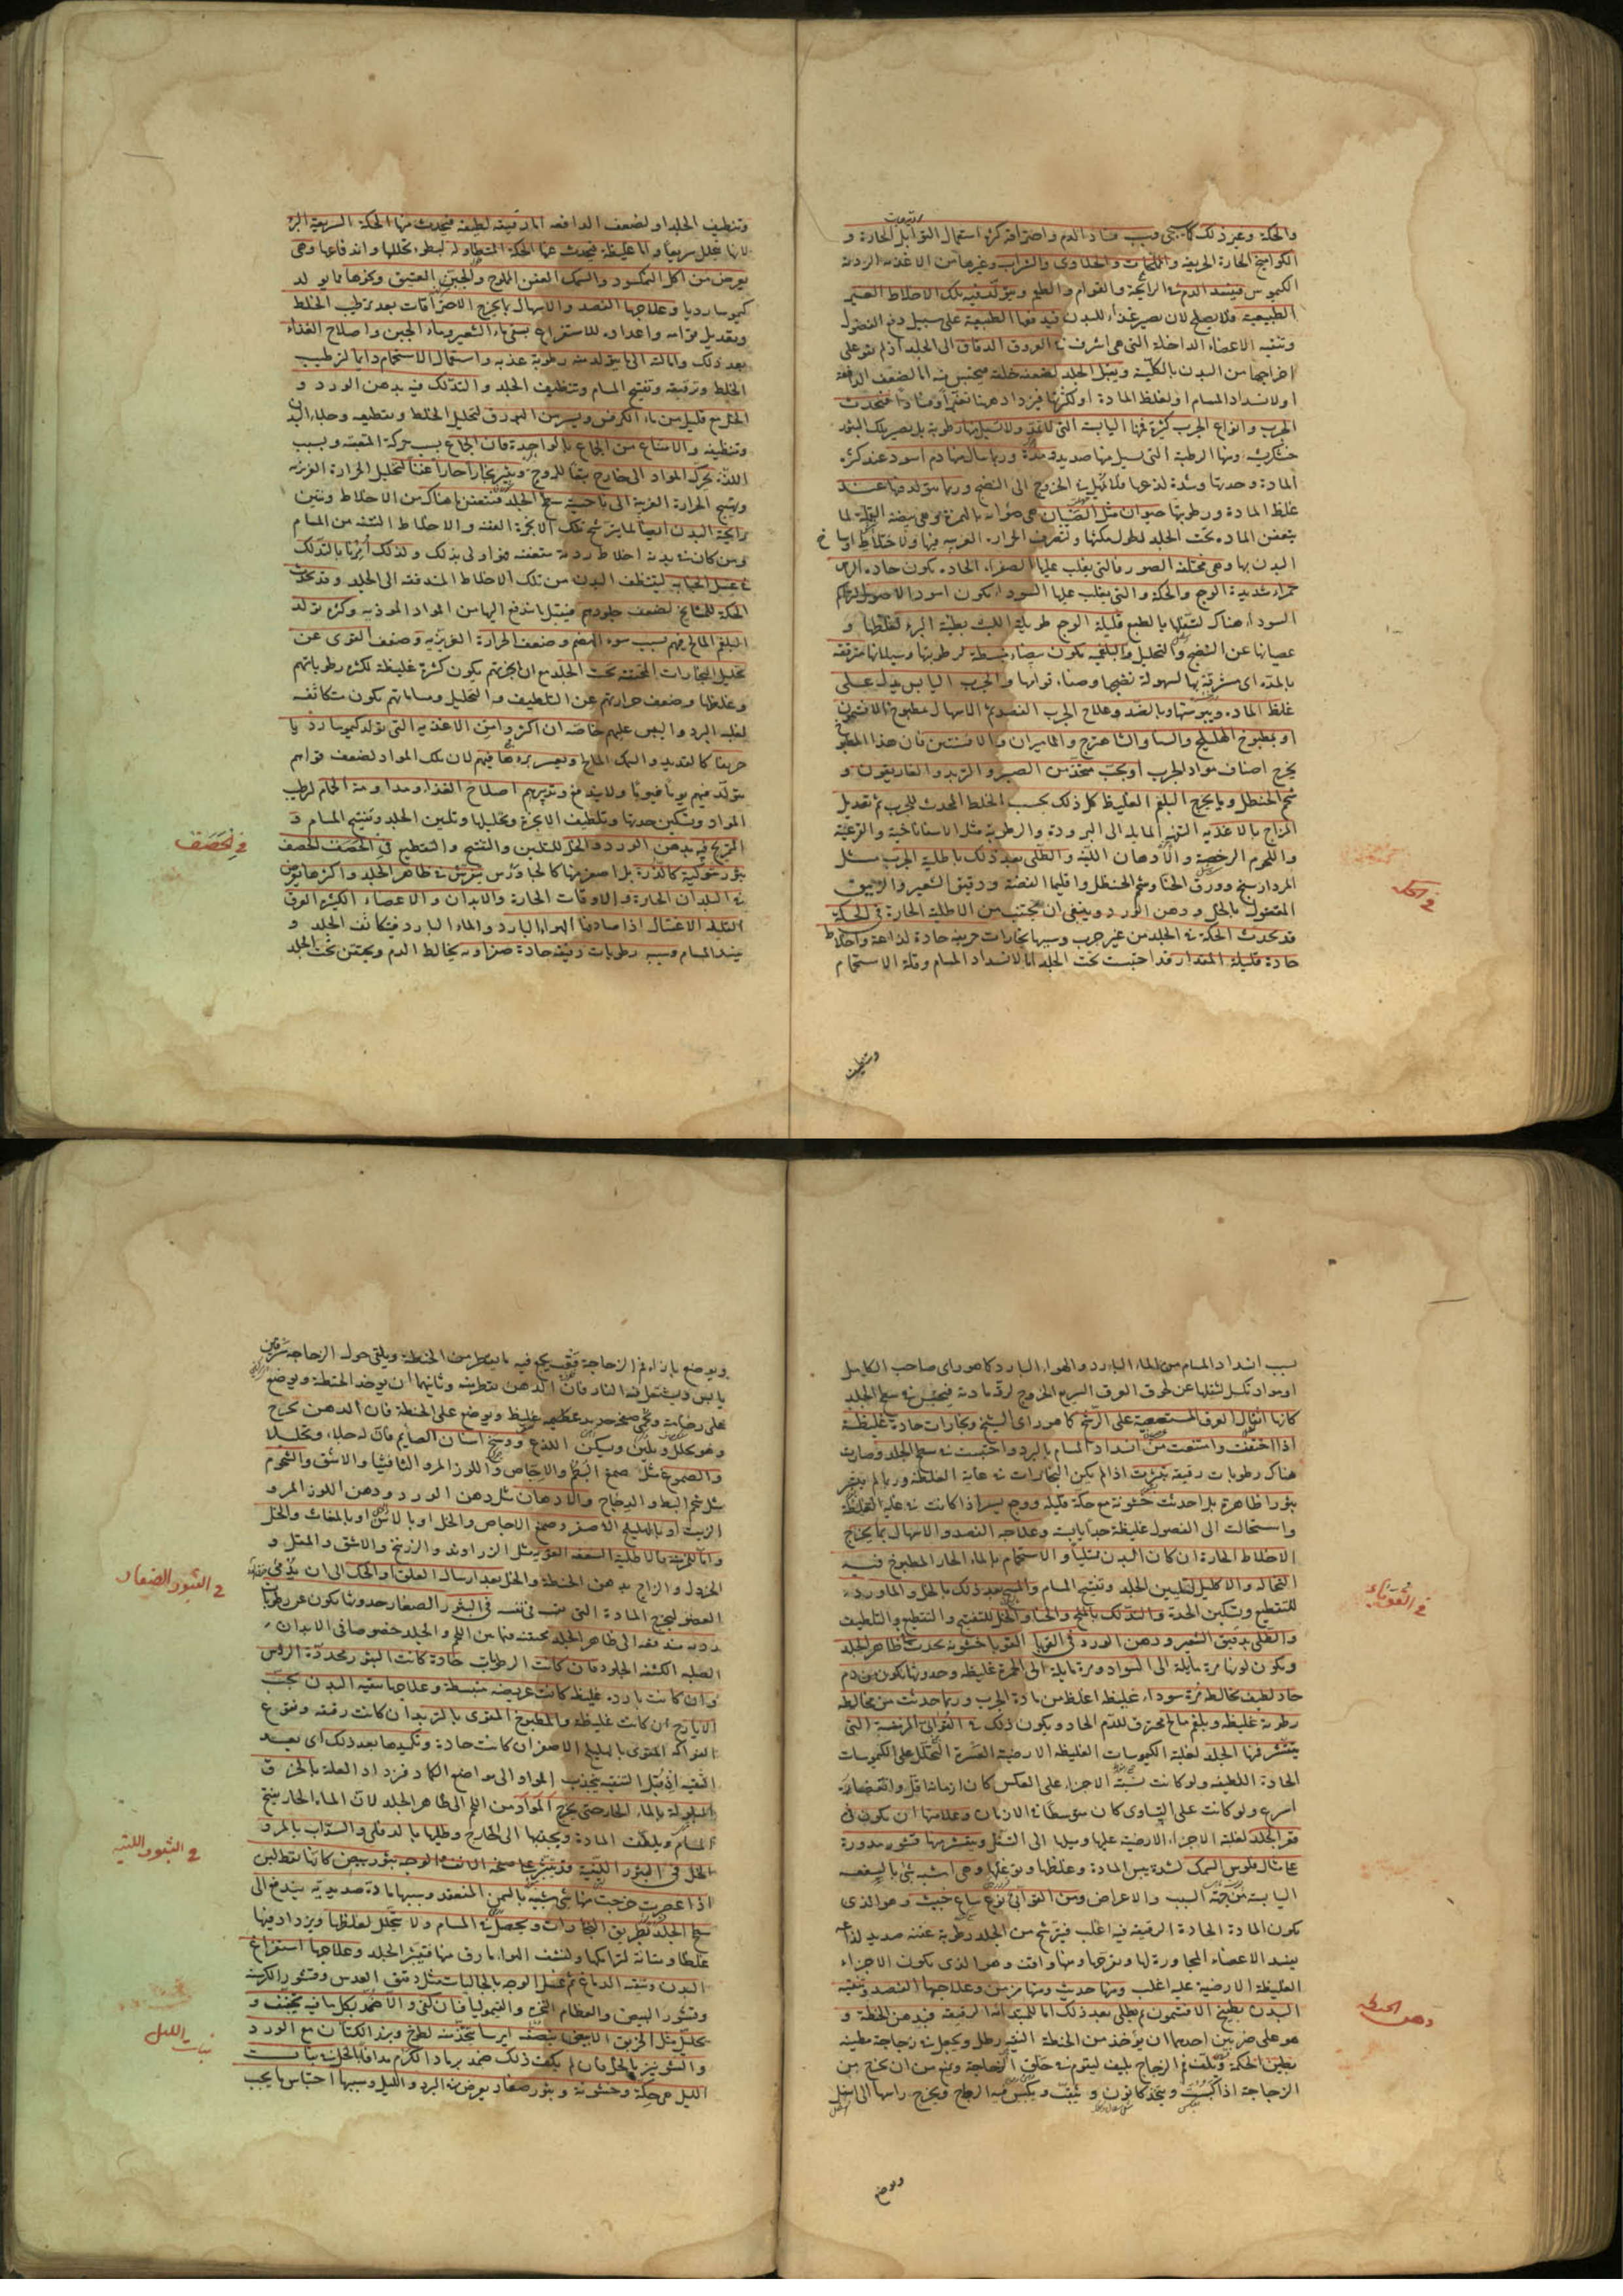 والحكة وغير ذلك كما سيجئ وسبب فساد الدم واحتراقه كثرة استعمال التوابل الحارة و
الكواميخ الحارة الحريفة والمملحات والحلاوى والشراب وغيرها من الاغذية الردئة
الكيموس فيفسد الدم فى الرائحة والقوام والطعم ويتولد فيه تلك الاخلاط الغير
الطبيعية فلا يصلح لان يصير غذاء للبدن فيدفعها الطبيعة على سبيل دفع الفضول
وتنقية الاعضاء الداخلة التى هى اشرف فى العروق الدقاق الى الجلد اذ لم تقو على
اخراجها من البدن بالكلية ويقبل الجلد لضعفه خلقة فيحتبس فيه اما لضعف الدافعة
او لانسداد المسام او لغلظ المادة او لكثرتها فيزداد هناك تعفنا وفسادا فيحدث
الجرب وانواع الجرب كثيرة فمنها اليابسة التى لا تقيح ولا تسيل منها رطوبة بل يصير تلك البثور
خشكريشة ومنها الرطبة التى تسيل منها صديد ومدة وربما سال منها دم اسود عند كثرة
المادة وحدتها وشدة لذعها فلا تمهل فى الخروج الى النضج وربما يتولد منها عند
غلظ المادة ورطوبتها حيوان مثل الصئبان
يتعفن المادة تحت الجلد لطول مكثها وتصرف الحرارة الغريبة فيها ولاختلاط اوساخ
البدن بها وهى مختلفة الصور فالتى يغلب عليها الصفراء الحادة يكون حادة الرأس
حمراء شديدة الوجع والحكة والتى يغلب عليها السوداء يكون اسود الاصول لتراكم
السوداء هناك لثقلها بالطبع قليلة الوجع طويلة اللبث بطيئة البرء لغلظها و
عصيانها عن النضج والتحليل والبلغمية يكون بيضاء منبسطة لرطوبتها وسيلانها مترققة
بالمدة اى مشرقة بها لسهولة نضجها وصفاء قوامها والجرب اليابس يدل على
غلظ المادة ويبوستها وبالضد وعلاج الجرب الفصد ثم الاسهال بمطبوخ الافتيمون
او بمطبوخ الهليلج والسنا والشاهترج والماميران والافسنتين فان هذا المطبوخ
يخرج اصناف مواد الجرب او بحب متخذ من الصبر والتربد والغاريقون و
شحم الحنظل وبما يخرج البلغم الغليظ كل ذلك بحسب الخلط المحدث للجرب ثم تعديل
المزاج بالاغذية التفهة المايلة الى البرودة والرطوبة مثل الاسفاناخية والقرعية
واللحوم الرخصة والادهان اللينة والطلى بعد ذلك باطلية الجرب مثل
المرداسنج وورق الحنا وشحم الحنظل واقليميا الفضة ودقيق الشعير والزيبق
المقتول بالخل ودهن الورد وينبغى ان يجتنب من الاطلية الحارة فى الحكة
قد يحدث الحكة فى الجلد من غير جرب وسببها بخارات حريفة حادة لذاعة واخلاط
حادة قليلة المقدار قد احتبست تحت الجلد اما لانسداد المسام وقلة الاستحمام
فى الحكة
وتنظيف
وتنظيف الجلد او لضعف الدافعة اما رقيقة لطيفة فيحدث منها الحكة السريعة البرء
لانها تتحلل سريعا واما غليظة فيحدث عنها الحكة المتطاولة لبطوء تحللها واندفاعها وهى
يعرض من اكل النمكسود والسمك العفن المملوح والجبن العتيق ونحوها مما يولد
كيموسا رديا وعلاجها الفصد والاسهال بما يخرج الاحتراقات بعد ترطيب الخلط
وتعديل قوامه واعداده للاستفراغ بسقى ماء الشعير وماء الجبن واصلاح الغذاء
بعد ذلك وامالته الى ما يتولد منه رطوبة عذبة واستعمال الاستحمام دايما لترطيب
الخلط وترقيقه وتفتيح المسام وتنظيف الجلد والتدلك فيه بدهن الورد و
الخل مع قليل من ماء الكرفس ويسير من البورق لتحليل الخلط وتقطيعه وجلاء البدن
وتنظيفه والامتناع من الجماع بالواحدة فان الجماع بسبب حركة المتعبة وبسبب
اللذة يحرك المواد الى خارج تبعا للروح ويثير بخارا حارا عفنا لتحليل الحرارة الغريزية
وتهييج الحرارة الغريبة الى ناحية سطح الجلد فتتعفن ما هناك من الاخلاط وينتن
رايحة البدن ايضا لما يترشح تلك الابخرة العفنة والاخلاط النتنة من المسام
ومن كان فى بدنه اخلاط ردية متعفنة فهو اولى بذلك ولذلك أمرنا بالتدلك
فى غسل الجنابة لينتظف البدن من تلك الاخلاط المندفعة الى الجلد وقد يحدث
الحكة للمشايخ لضعف جلودهم فيقبل ما يندفع اليها من المواد الموذية وكثرة تولد
البلغم المالح فيهم بسبب سوء الهضم وضعف الحرارة الغريزية وضعف القوى عن
تحليل البخارات المحتقنة تحت الجلد مع ان ابخرتهم يكون كثيرة غليظة لكثرة رطوباتهم
وغلظها وضعف حرارتهم عن التلطيف والتحليل ومساماتهم يكون متكاثفة
لغلبة البرد واليبس عليهم خاصة ان اكثروا من الاغذية التى تولد كيموسا رديا
حريفا كالقديد والسمك المالح ويعسر برؤها فيهم لان تلك المواد لضعف قواهم
يتولد فيهم يوما فيوما ولا يندفع وتدبيرهم اصلاح الغذاء ومداومة الحمام لترطيب
المواد وتسكين حدتها وتلطيف الابخرة وتحليلها وتليين الجلد وتفتيح المسام و
التمريخ فيه بدهن الورد والخل للتليين والتفتيح والتقطيع فى الحصف الحصف
بثور شوكية كالذرة بل اصغر منها كالجاورس يفترش فى ظاهر الجلد واكثرها يعرض
فى البلدان الحارة والاوقات الحارة والابدان والاعضاء الكثيرة العرق
القليلة الاغتسال اذا صادفها الهواء البارد والماء البارد فيتكاثف الجلد و
ينسد المسام وسببه رطوبات رقيقة حادة صفراوية يخالط الدم ويحتقن تحت الجلد
فى الحصف
بسبب انسداد المسام من الماء البارد والهواء البارد كما هو رأى صاحب الكامل
او مواد تكسل لثقلها عن لحوق العرق السريع الخروج لرقة مادته فيحتبس فى سطح الجلد
كانها اثفال العرق المستعصية على الرشح كما هو رأى الشيخ وبخارات حادة غليظة
اذا احتقنت وامتنعت من انسداد المسام بالبرد واحتبست فى سطح الجلد وصارت
هناك رطوبات رقيقة بثرت اذا لم يكن البخارات فى غاية الغلظة وربما لم يبثر
بثورا ظاهرة بل احدثت خشونة مع حكة قليلة ووجع يسير اذا كانت فى غلبة الغلظة
واستحالت الى الفضول غليظة جدا يابسة وعلاجه الفصد والاسهال بما يخرج
الاخلاط الحارة ان كان البدن ممتليا والاستحمام بالماء الحار المطبوخ فيه
النخالة والاكليل لتليين الجلد وتفتيح المسام والمسح بعد ذلك بالخل والماورد
للتقطيع وتسكين الحدة والتدلك بالملح والحنا والخل للتفتيح والتقطيع والتلطيف
والطلى بدقيق الشعير ودهن الورد فى القوبا القوبا خشونة يحدث فى ظاهر الجلد
ويكون لونها مرة مايلة الى السواد ومرة مايلة الى الحمرة غليظة وحدوثها يكون من دم
حاد لطيف يخالطه مرة سوداء غليظة اغلظ من مادة الجرب وربما حدثت من مخالطة
رطوبة غليظة وبلغم مالح محترق للدم الحاد ويكون ذلك فى القوابى المزمنة التى
يتقشر منها الجلد لغلبة الكيموسات الغليظة الارضية العسرة التحلل على الكيموسات
الحادة اللطيفة ولو كانت نسبة الاجزاء على العكس كان ازمانها اقل وانقضاؤه
اسرع ولو كانت على التساوى كان متوسطا فى الازمان وعلامتها ان يكون فى
قعر الجلد لغلبة الاجزاء الارضية عليها وميلها الى الثقل ويتقشر منها قشور مدورة
على مثال فلوس السمك لشدة يبس المادة وغلظها وتوغلها وهى اشبه شئ بالسعفة
اليابسة من جهة السبب والاعراض ومن القوابى نوع ساع خبيث وهو الذى
يكون المادة الحادة الرقيقة فيه اغلب فيترشح من الجلد رطوبة عفنة صديدية لذاعة
يفسد الاعضاء المجاورة لها ويقرحها ومنها واقف وهو الذى يكون الاجزاء
الغليظة الارضية عليه اغلب ومنها حديث ومنها مزمن وعلاجها الفصد وتنقية
البدن بطبيخ الافتيمون ثم يطلى بعد ذلك اما للمبتدئة الرقيقة فبدهن الحنطة و
هو على ضربين احدهما ان يوخذ من الحنطة النقية رطل ويجعل فى زجاجة مطينة
بطين الحكمة ويلف فم الزجاج بليف ليقوم فى حلق الزجاجة ويمنع من ان يخرج من
الزجاجة اذا كبت ويتخذ كانون ويثقب ويكبس فيه الزجاج ويخرج راسها الى اسفل
فى القوباء
دهن الحنطة
ويوضع
ويوضع بازاء فم الزجاجة قعب يجمع فيه ما يقطر من الحنطة ويلقى حول الزجاجة سرقين
يابس ويشتعل فيه النار فان الدهن يتقطر منه وثانيهما ان يوخذ الحنطة ويوضع
على رخامة ويحمى صفيحة حديد عظيمة غليظة ويوضع على الحنطة فان الدهن يخرج
وهو يحلل ويلين ويسكن اللذع ووسخ اسنان الصايم فان له جلاء وتحليلا
والصموغ مثل صمغ البطم والاجاص واللوز المر والقاقيا والاشق والشحوم
مثل شحم البط والدجاج والادهان مثل دهن الورد ودهن اللوز المر و
الزيت او بالهليلج الاصفر وصمغ الاجاص والخل او بالاشق او بالمغاث والخل
واما المزمنة فالاطلية السعفة القوية مثل الزراوند والزرنيخ والاشق والمقل و
الخردل والزاج بدهن الحنطة والخل بعد ارسال العلق او الحك الى ان يدمى
العضو ليخرج المادة التى فيه فى نفسه فى البثور الصغار حدوثها يكون عن رطوبات
ردية مندفعة الى ظاهر الجلد محتقنة فيما بين اللحم والجلد خصوصا فى الابدان
الصلبة الكثيفة الجلود فان كانت الرطوبات حادة كانت البثور محددة الراس
وان كانت باردة غليظة كانت عريضة منبسطة وعلاجها تنقية البدن بحب
الايارج ان كانت غليظة والمطبوخ المقوى بالتربد ان كانت رقيقة ونقوع
الفواكه المقوى بالهليلج الاصفر ان كانت حادة وتكميدها بعد ذلك اى بعد
التنقية اذ قبل التنقية ينجذب المواد الى مواضع الكماد فيزداد العلة بالخرق
المبلولة بالماء الحار حتى يخرج المواد من اللحم الى ظاهر الجلد لان الماء الحار يفتح
المسام ويلطف المادة ويجذبها الى الخارج وطليها بالدفلى والسذاب بالمر و
الخل فى البثور اللبنية قد يبثر على صفحة الانف والوجه بثور بيض كانها نقط لبن
اذا عصرت خرجت منها شئ شبيه بالسمن المنعقد وسببها مادة صديدية يندفع الى
سطح الجلد بطريق البخارات ويحصل فى المسام ولا يتحلل لغلظها ويزداد فيها
غلظا ومتانة لتراكمها ولنشف الهواء ما رق منها فيبثر الجلد وعلاجها استفراغ
البدن وتنقية الدماغ ثم غسل الوجه بالجاليات مثل دقيق العدس وقشور الكرسنة
وقشور البيض والعظام النخرة والقيموليا فان كفى والا ضمد بكل ما فيه تجفيف و
تحليل مثل الخربق الابيض بنصفه ايرسا يتخذ منه لطوخ وبزر الكتان مع الورد
والشونيز بالخل فان لم يكف ذلك ضمد برماد الكرم مدافا بالخل فى بنات
الليل هى حكة وخشونة وبثور صغار يعرض فى البرد والليل وسببها احتباس ما يجب
فى البثور الصغار
فى البثور اللبنية
بنات الليل